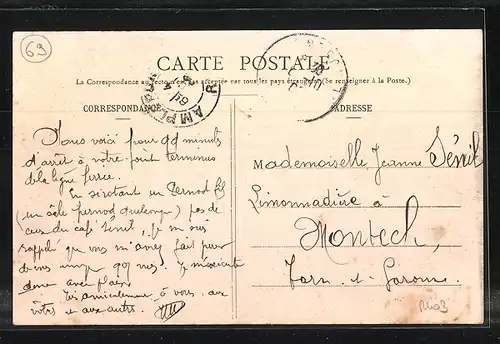 69
CARTE POSTALE
La Correspondance au recto n'est pas acceptée par tous les pays étrangers (Se renseigner à la Poste.)
CORRESPONDANCE
ADRESSE
AMPL
Nous voici pour 99 minutes
d'arrêt à votre point terminus
de la ligne ferrée.
En sirotant un Pernod fils
(un sale pernod quelconque) pas de
ceux du café Sénil, je me suis
rappelé que vous m'avez fait pour
m'exécute
donc avec plaisir
Très amicalement à vous, aux
vôtres et aux autres.
Mademoiselle Jeanne Sénil
Limonadière à
Montech,
Tarn et Garonne